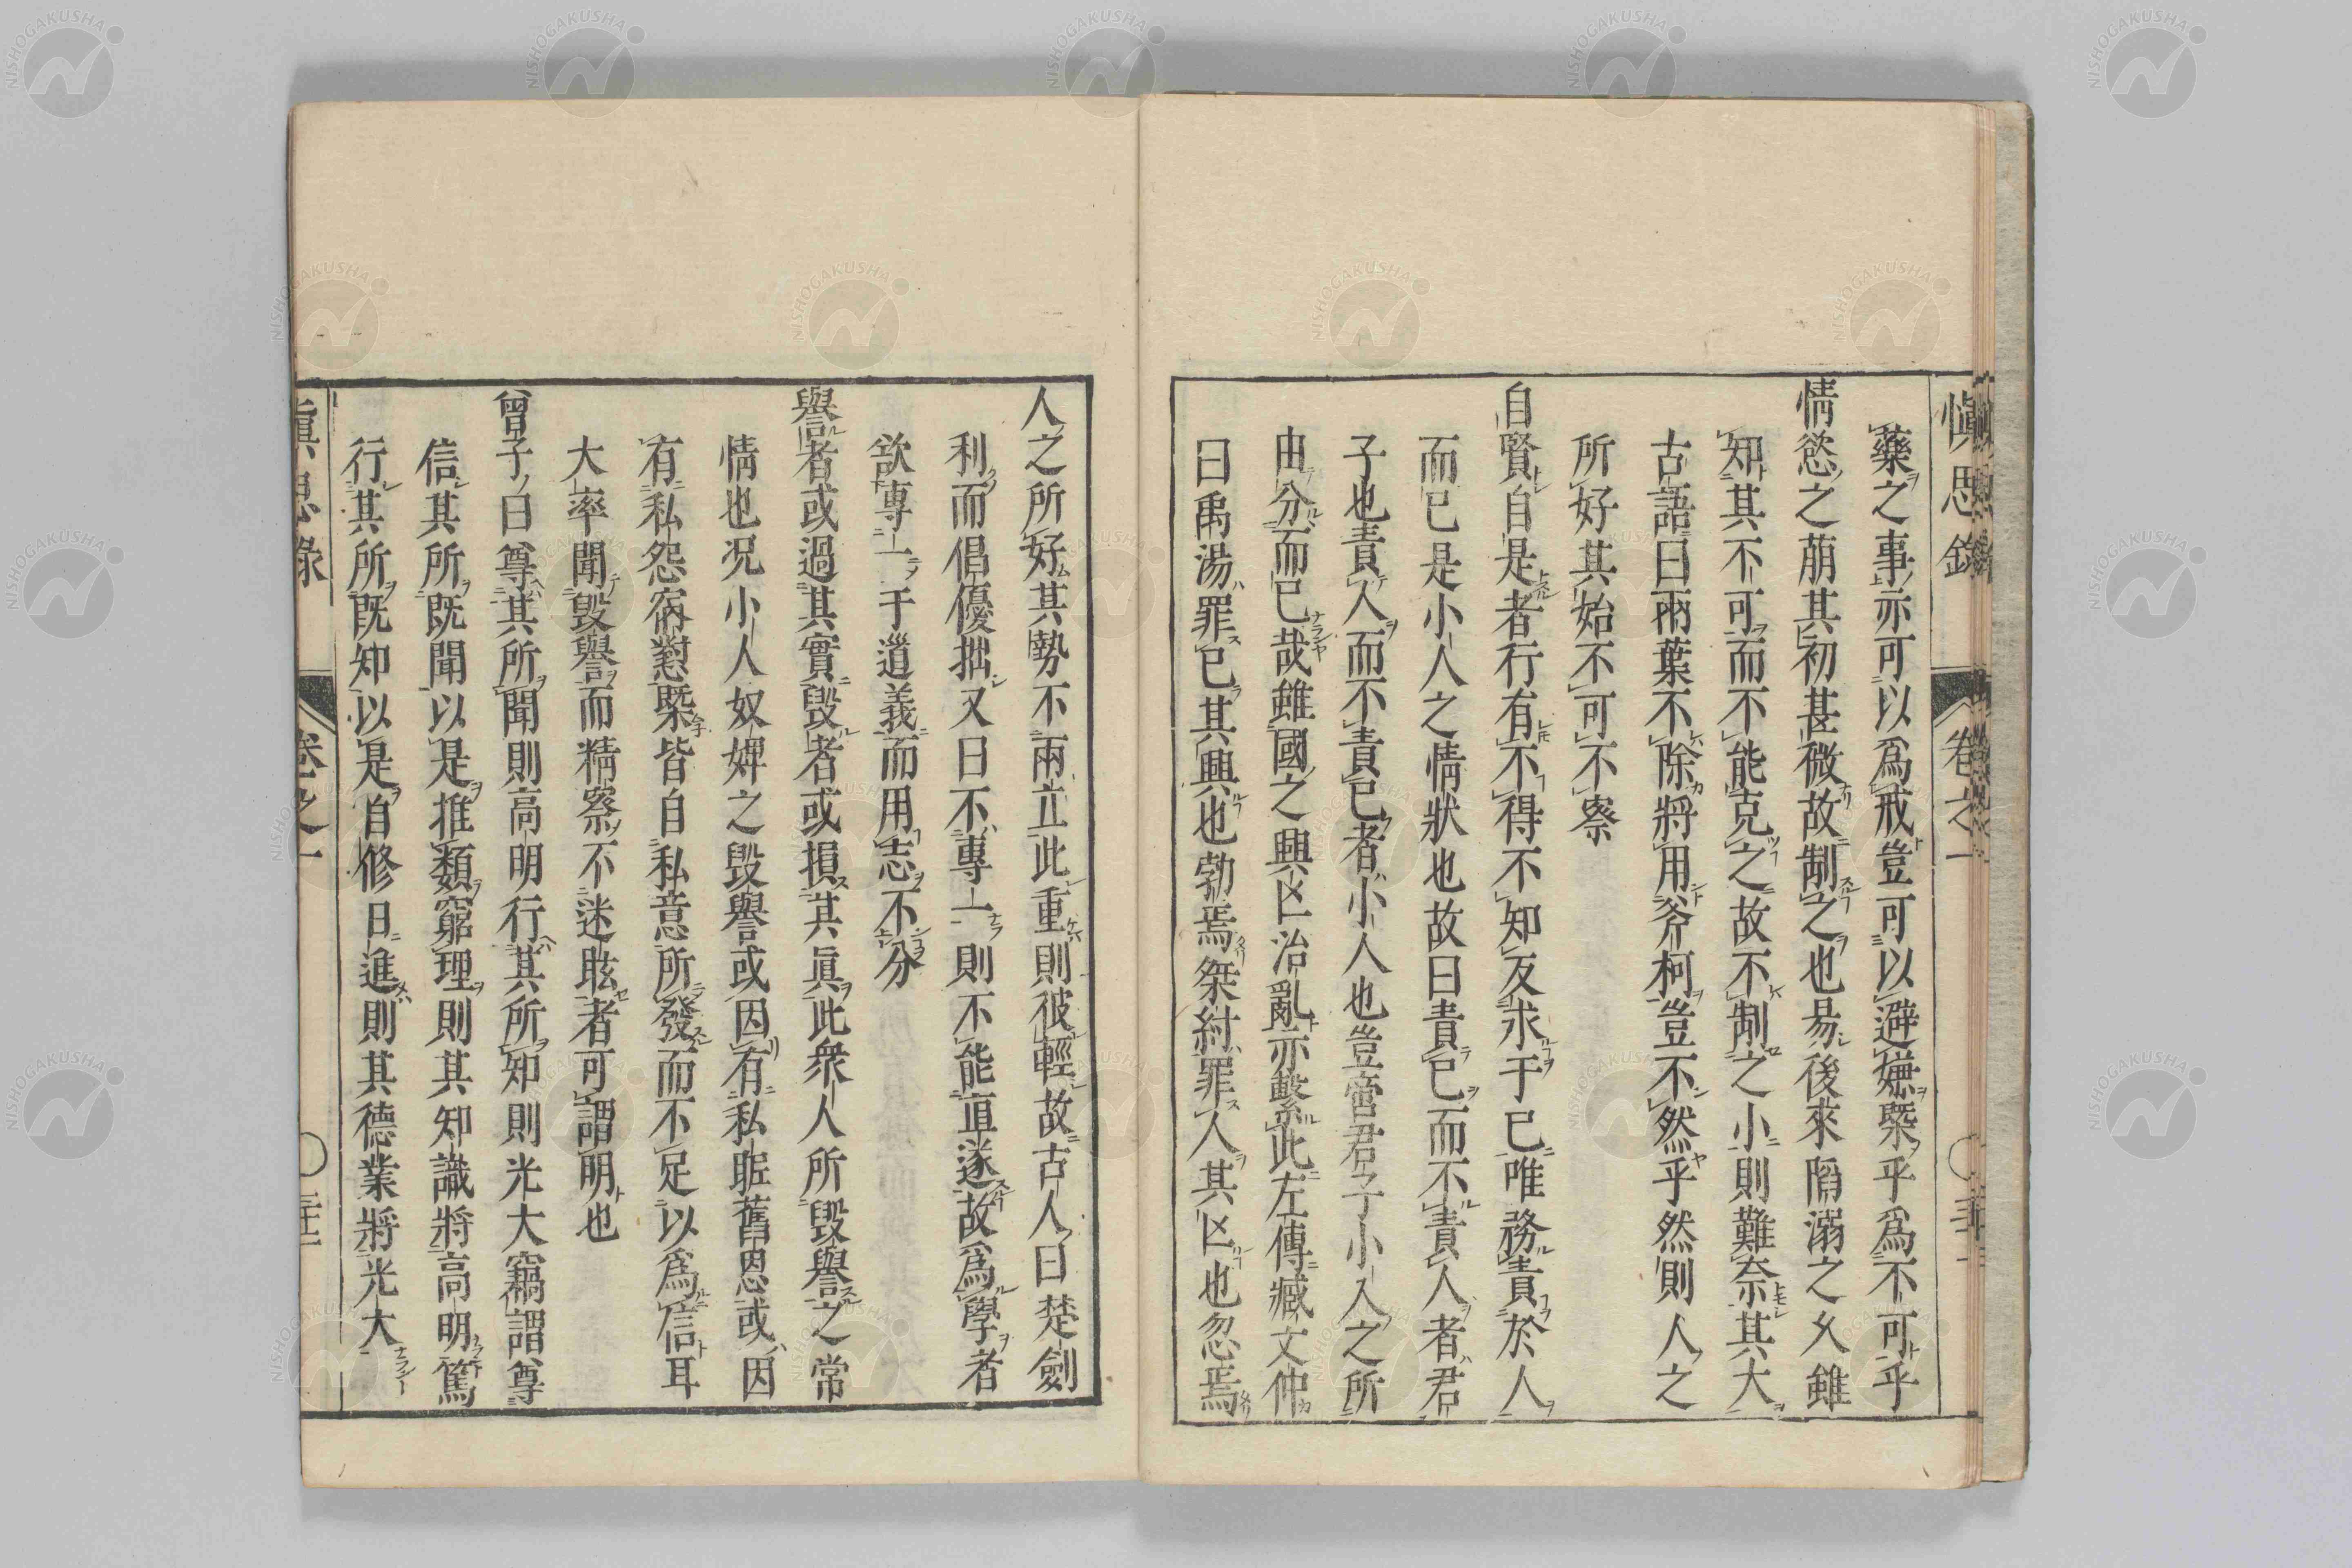 愼思錄 卷之一
藥之事亦可以爲戒豈可以避嫌槩乎爲不可乎
情慾之萠其初甚微故制之也易後來陷溺之久雖
知其不可而不能克之故不制之小則難奈其大
古語曰兩葉不除將用斧柯豈不然乎然則人之
所好其始不可不察
自賢自是者行有不得不知反求于已唯務責於人
而已是小人之情狀也故曰責已而不責人者君
子也責人而不責已者小人也豈啻君子小人之所
由分而已哉雖國之興亡治亂亦繫此左傳臧文仲
曰禹湯罪已其興也勃焉桀紂罪人其亡也忽焉
人之所好其勢不兩立此重則彼輕故古人曰楚劍
利而倡優拙又曰不專一則不能直遂故爲學者
欲專一于道義而用志不分
譽者或過其實毀者或損其眞此衆人所毀譽之常
情也况小人奴婢之毀譽或因有私昵舊恩或因
有私怨宿懟槩皆自私意所發而不足以爲信耳
大率聞毀譽而精察不迷眩者可謂明也
曾子曰尊其所聞則高明行其所知則光大竊謂尊
信其所既聞以是推類窮理則其知識將高明篤
行其所既知以是自修日進則其德業將光大
愼思錄 卷之一